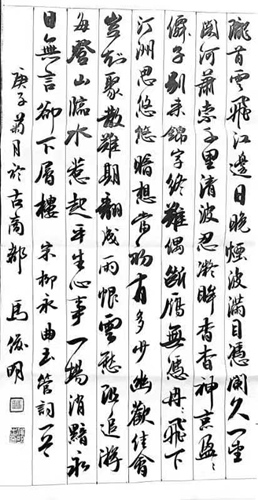 隴首雲飛江邊日晚煙波滿目憑闌久一望
關河蕭索千里清波忍凝眸杳杳神京盈〻
僊子別來錦字終難偶斷雁無憑冉〻飛下
汀洲思悠悠暗想當初有多少幽歡佳會
豈知聚散難期翻成雨恨雲愁阻追游
每登山臨水惹起平生心事一場消黯永
日無言卻下層樓 宋柳永曲玉管詞一首
庚子菊月於古商都 馬俊明